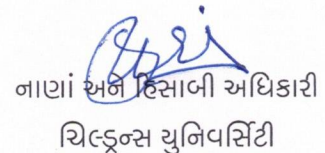 નાણાં અને હિસાબી અધિકારી
ચિલ્ડ્રન્સ યુનિવર્સિટી